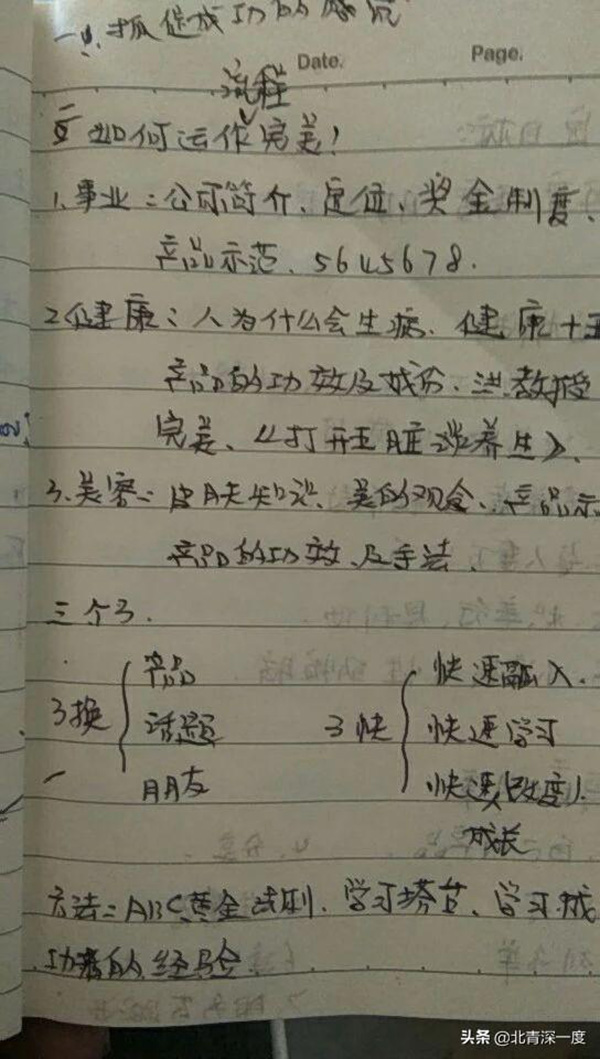 Date. Page.
流程
如何运作完美!
1、事业:公司简介、定位、奖金制度、
产品示范、5645678.
2健康:人为什么会生病、健康十五
产品的功效及成份、洪教授
完美、《打开五脏谈养生》、
3、美容:皮肤知识、美的观念、产品示
产品的功效、及手法、
三个3.
3换 产品 话题 朋友
3快 快速融入、 快速学习 快速改变 成长
方法:ABC黄金法则、学习搭台、学习成
功者的经验
头条 @北青深一度